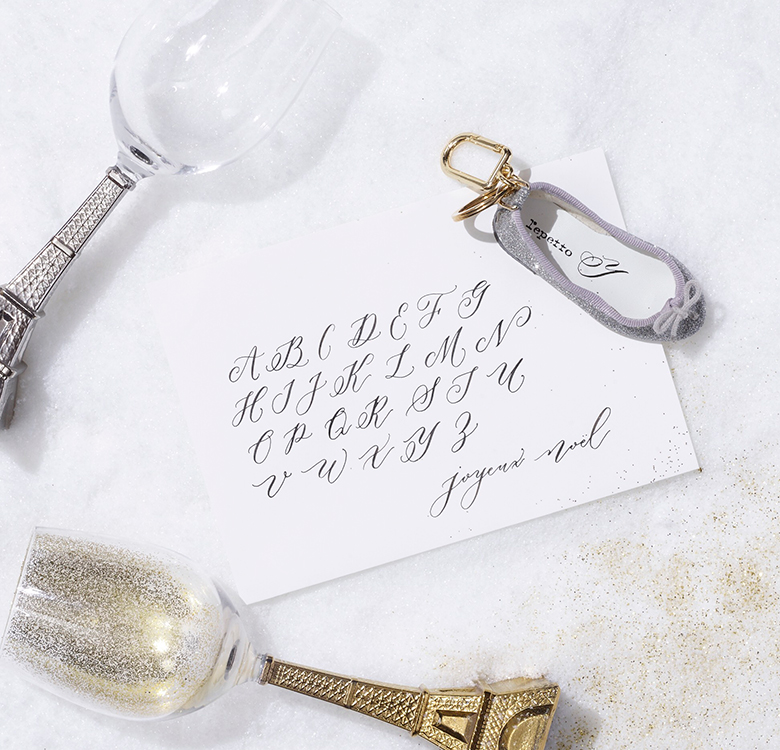 repetto Y
A B C D E F G
H I J K L M N
O P Q R S T U
V W X Y Z
joyeux noël